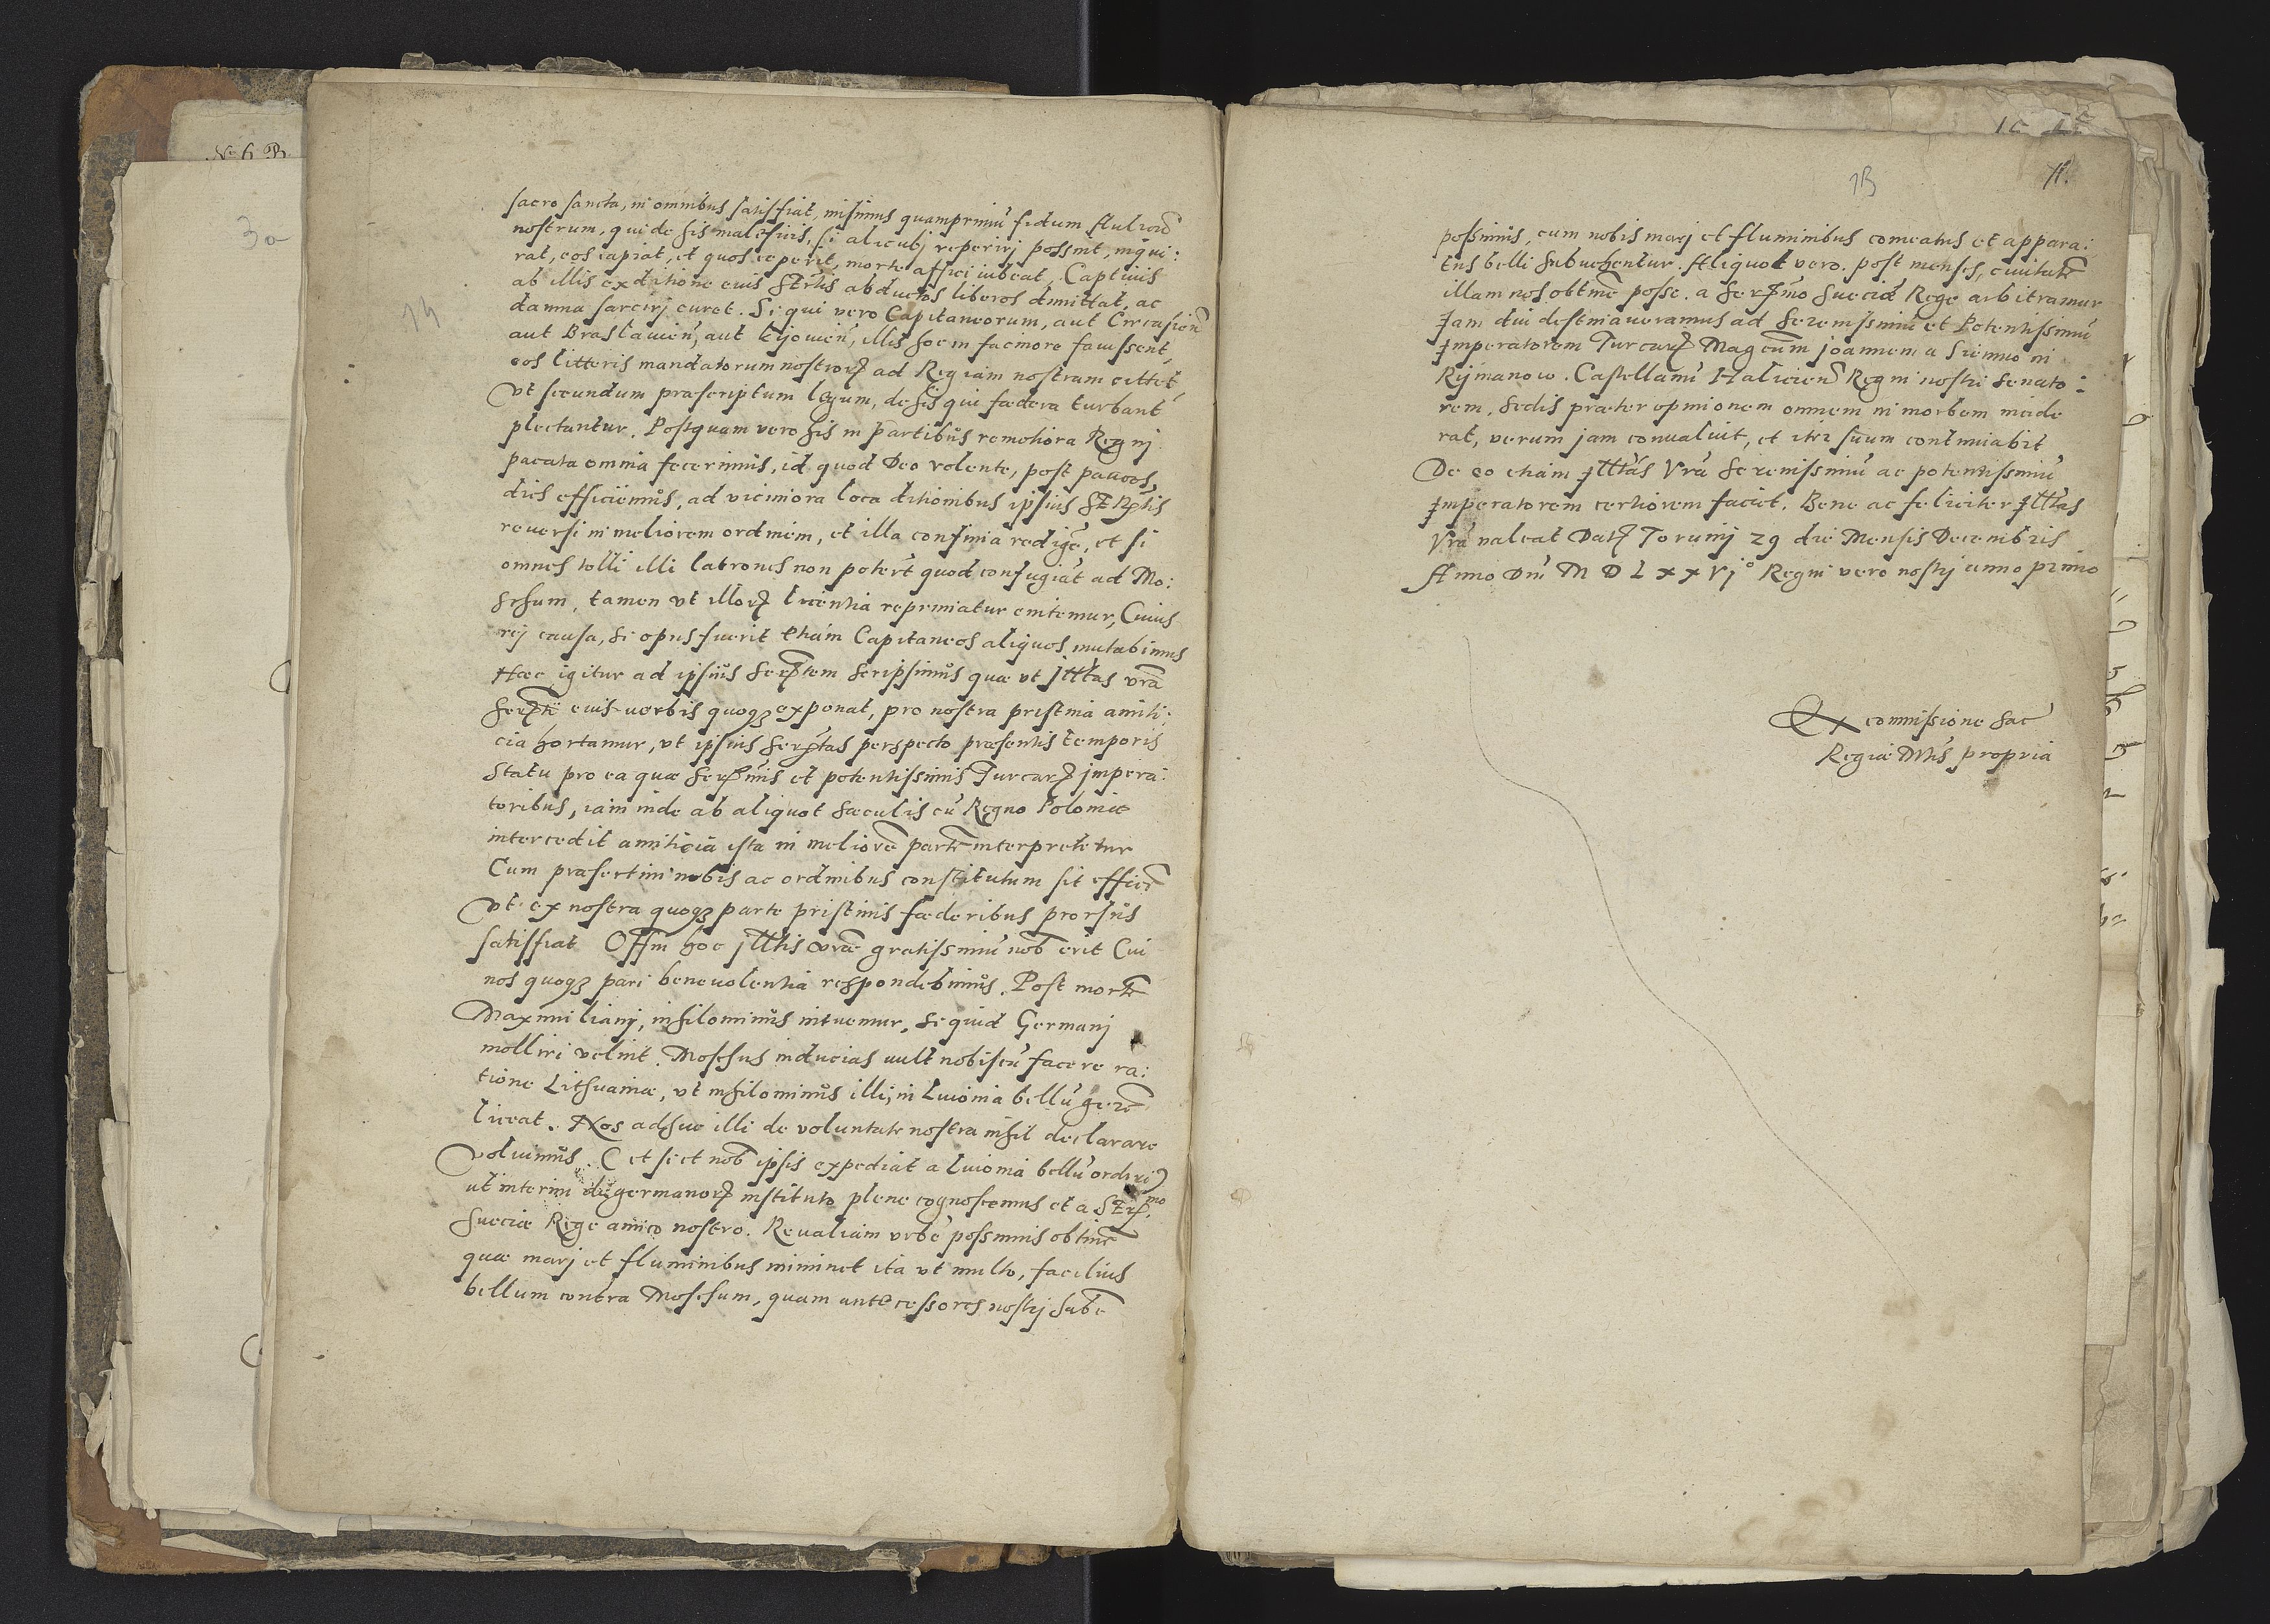 No 6 B.
30
14
sacro sancta, in omnibus satisfiat, misimus quamprimū fidum Aulicū
nostrum, qui de his maleficiis, si alicubj reperirj possint, inqui:
rat, eos capiat, et quos ceperit, morte affici iubeat. Captivis
ab illis ex ditione eius Sertis abductos liberos dimittat, ac
damna sarcirj curet. Si qui vero Capitaneorum, aut Circasien
aut Braslavien, aut Kijovien, illis hoc in facinore favissent,
eos litteris mandatorum nostrorʒ ad Regiam nostram cittet,
Vt secundum præscriptum legum, de his qui fœdera turbant
plectantur. Postquam vero his in partibus remotiora Regnj
pacata omnia fecerimus, id quod Deo volente, post paucos,
dies efficiemus, ad viciniora loca ditionibus ipsius Sertis
reversi in meliorem ordinem, et illa confinia redige, et si
omnes tolli illi latrones non poterit quod confugiāt ad Mo:
schum, tamen vt illorʒ licentia reprimatur enitemur, Cuius
rej causa, si opus fuerit etiam Capitaneos aliquos mutabimus
Hæc igitur ad ipsius Sertem scripsimus quæ vt Jlltas vrā
Serti eius verbis quoqʒ exponat, pro nostra pristina amiti:
cia hortamur, vt ipsius Sertas perspecto præsentis temporis
statu pro ea quæ Sermis et potentissimis Turcarʒ impera:
toribus, iam inde ab aliquot sæculis cū Regno Poloniæ
intercedit amiticia ista in meliorē partē interpretetur
Cum præsertim nobis ac ordinibus constitutum sit efficē
vt ex nostra quoqʒ parte pristinis fœderibus prorsus
satisfiat Offm hoc Jlltis vræ gratissimū nob erit Cui
nos quoqʒ pari benevolentia respondebimus. Post mortē
Maximilianj, nihilominus intuemur, si quid Germanj
molliri velint. Moschus inducias vult nobiscū facere ra:
tione Lithuaniæ, vt nihilominus illi, in Livonia bellū gerē
liceat. Nos adhuc illi de voluntate nostra nihil declarare
voluimus. (et si et nob ipsis expediat a Livonia bellū ordiri)
ut interim de germanorʒ instituto plene cognoscamus et a Sermo
Sueciæ Rege amico nostro. Revaliam vrbē possimus obtinē
quæ marj et fluminibus iminet ita vt multo, facilius
bellum contra Moschum, quam antecessores nostrj habē
1B
11.
possimus, cum nobis marj et fluminibus comeatus et appara:
tus belli subvehentur. Aliquot vero. post menses, civitatē
illam nos obtinē posse. a Sermo Sueciæ Rege arbitramur
Jam diu destinaveramus ad Serenissimū et Potentissimū
Jmperatorem Turcarʒ Mageum Joannem a Sienno in
Rijmanow. Castellanū Halicien Regni nostri Senato:
rem, sed is præter opinionem omnem in morbem incide
rat, verum jam convaluit, et iter suum continuabit
De eo etiam Jlltas Vrā Serenissimū ac potentissimū
Jmperatorem certiorem faciet. Bene ac feliciter Jlltas
Vrā valeat Datʒ Torunij 29 die Mensis Decembris
Anno Dni M D L x x Vjo Regni vero nostrj anno primo
Ex commissione Sac
Regiæ Mtis propria